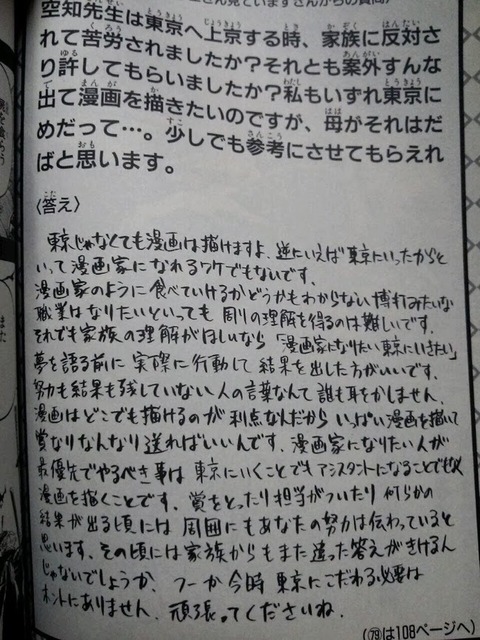 空知先生は東京へ上京する時、家族に反対さ
れて苦労されましたか？それとも案外すんな
り許してもらいましたか？私もいずれ東京に
出て漫画を描きたいのですが、母がそれはだ
めだって…。少しでも参考にさせてもらえれ
ばと思います。
〈答え〉
東京じゃなくても漫画は描けますよ、逆にいえば東京にいったからと
いって漫画家になれるワケでもないです。
漫画家のように食べていけるかどうかもわからない博打みたいな
職業はなりたいといっても周りの理解を得るのは難しいです。
それでも家族の理解がほしいなら「漫画家になりたい東京にいきたい」
夢を語る前に実際に行動して結果を出した方がいいです。
努力も結果も残していない人の言葉なんて誰も耳をかしません。
漫画はどこでも描けるのが利点なんだからいっぱい漫画を描いて
賞なりなんなり送ればいいんです。漫画家になりたい人が
最優先でやるべき事は東京にいくことでもアシスタントになることでもなく
漫画を描くことです。賞をとったり担当がついたり何らかの
結果が出る頃には周囲にもあなたの努力は伝わっていると
思います。その頃には家族からもまた違った答えがきけるん
じゃないでしょうか、フーか今時東京にこだわる必要は
ホントにありません。頑張ってくださいね。
(㊴は108ページへ)